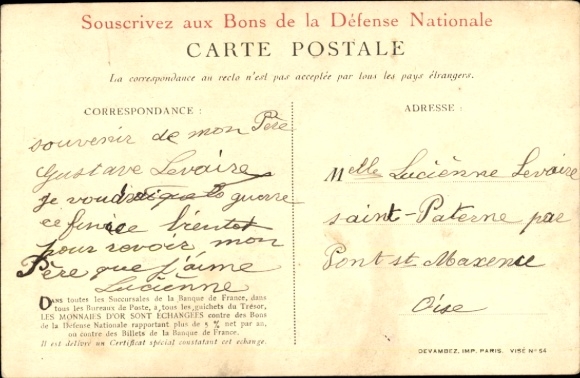 Souscrivez aux Bons de la Défense Nationale
CARTE POSTALE
La correspondance au recto n'est pas acceptée par tous les pays étrangers.
CORRESPONDANCE :
souvenir de mon Père
Gustave Levaire
je voudrai que la guerre
ce finice bientot
pour revoir mon
Père que j'aime
Lucienne
DANS toutes les Succursales de la Banque de France, dans
tous les Bureaux de Poste, à tous les guichets du Trésor,
LES MONNAIES D'OR SONT ÉCHANGÉES contre des Bons
de la Défense Nationale rapportant plus de 5 % net par an,
ou contre des Billets de la Banque de France.
Il est délivré un Certificat spécial constatant cet échange.
ADRESSE :
Melle Luciènne Levaire
saint-Paterne par
Pont st Maxence
Oise
DEVAMBEZ, IMP. PARIS. VISÉ N° 54